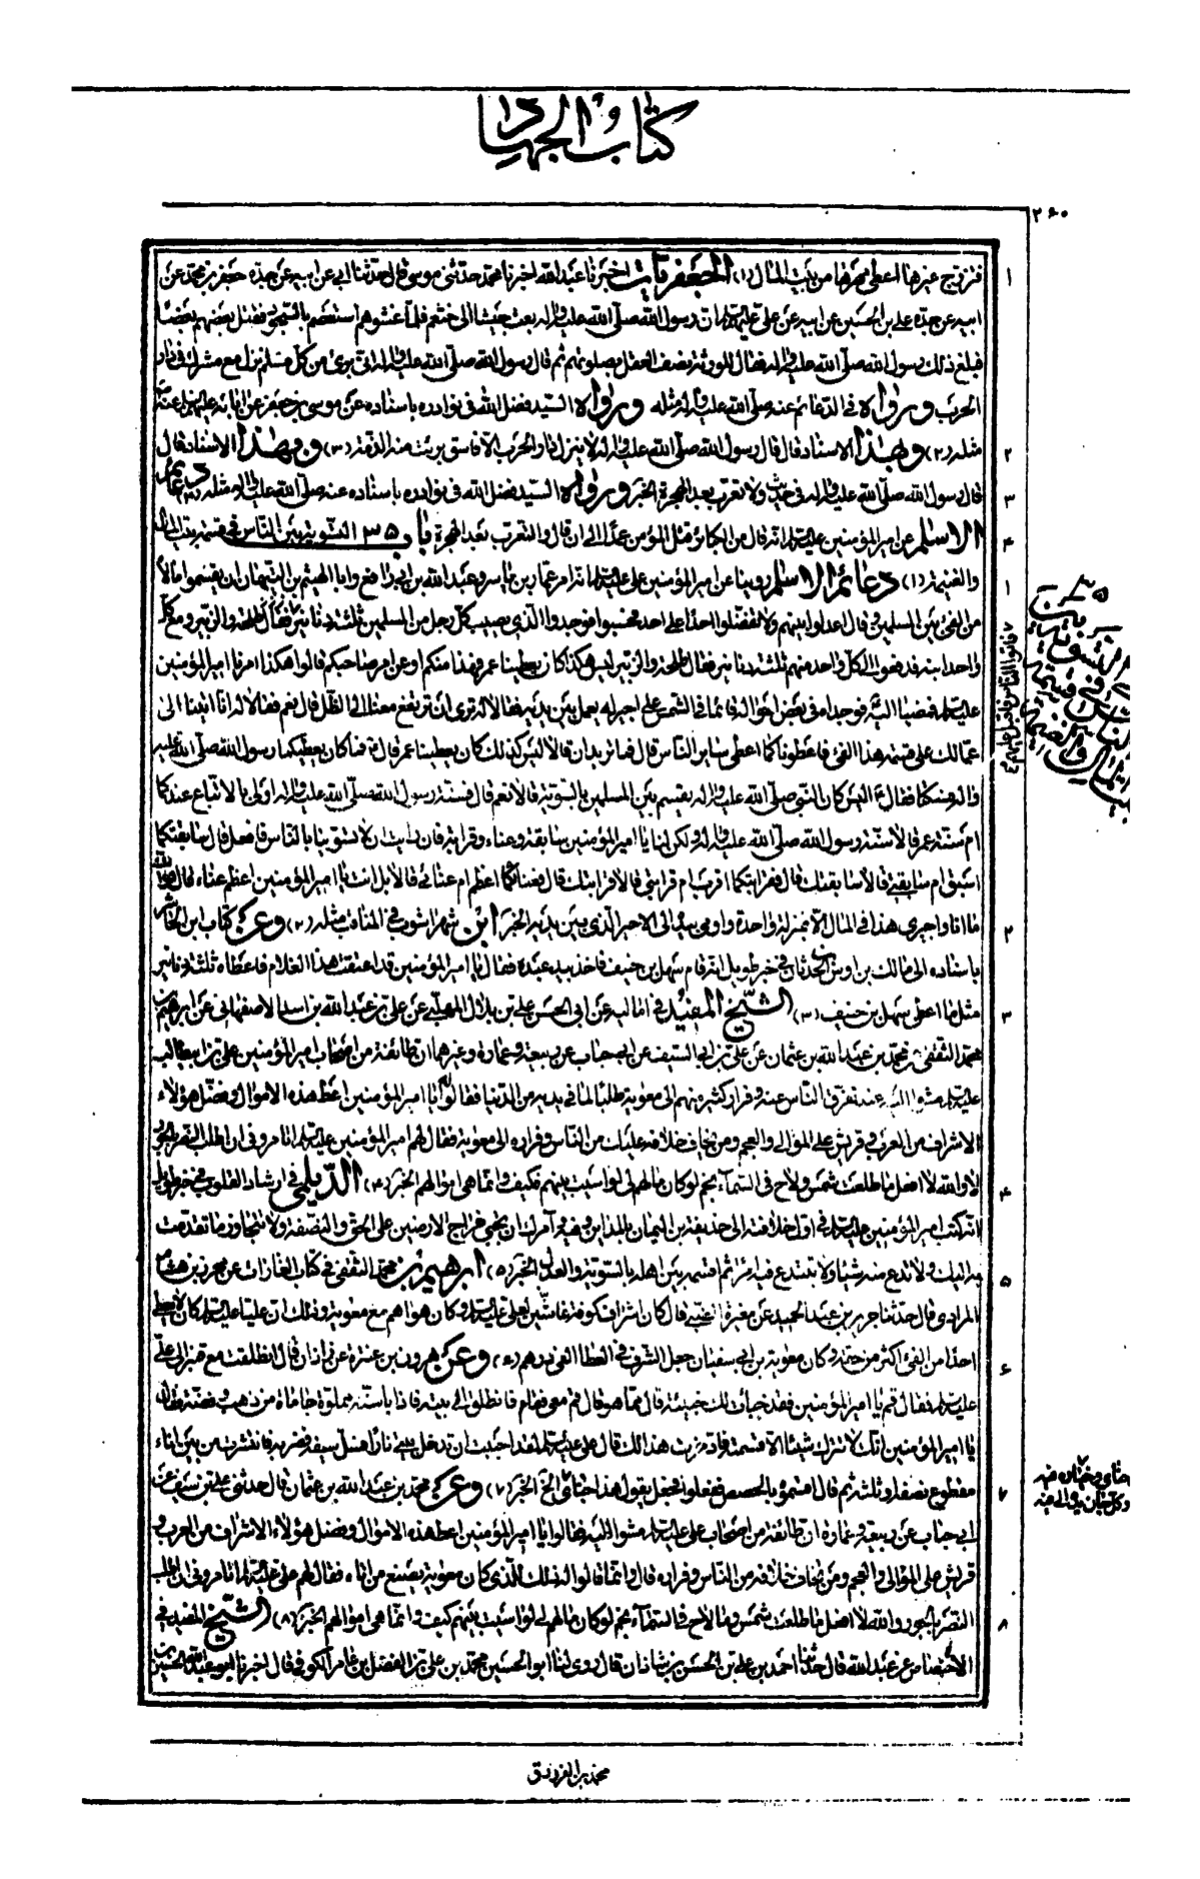 كتاب الجهاد
٢٦٠
فتزوج غيرها اعطى مهرها من بيت المال (١) الجعفريات اخبرنا عبدالله اخبرنا محمد حدثنى موسى قال حدثنا ابى عن ابيه عن جده جعفر بن محمد عن
ابيه عن جده على بن الحسين عن ابيه عن على عليه السلم ان رسول الله صلى الله عليه واله بعث جيشا الى خثعم فلما غشوهم استعصموا بالسجود فقتل بعضهم بعضا
فبلغ ذلك رسول الله صلى الله عليه واله فقال للورثة نصف العقل بصلوتهم ثم قال رسول الله صلى الله عليه واله انى برئ من كل مسلم نزل مع مشرك فى دار
الحرب ورواه فى الدعائم عنه صلى الله عليه واله مثله ورواه السيد فضل الله فى نوادره باسناده عن موسى بن جعفر عن ابائه عليهم السلم عنه
مثله (٢) وبهذا الاسناد قال قال رسول الله صلى الله عليه واله لا ينزل دار الحرب الا فاسق برئت منه الذمة (٣) وبهذا الاسناد قال
قال رسول الله صلى الله عليه واله فى حديث ولا تعرب بعد الهجرة الخبر ورواه السيد فضل الله فى نوادره باسناده عنه صلى الله عليه واله مثله (٤) دعائم
الاسلم عن امير المؤمنين عليه السلم انه قال من الكبائر قتل المؤمن عمدا الى ان قال والتعرب بعد الهجرة باب ٣٥ التسوية بين الناس فى قسمة بيت المال
والغنيمة (١) دعائم الاسلم روينا عن امير المؤمنين على عليه السلم انه امر عمار بن ياسر وعبدالله بن ابى رافع وابا الهيثم بن التيهان ان يقسموا مالا
من الفئ بين المسلمين وقال اعدلوا بينهم ولا تفضلوا احدا على احد فحسبوا فوجدوا الذى يصيب كل رجل من المسلمين ثلثة دنانير فاقبل طلحة والزبير ومع كل
واحد ابنه فدفعوا الى كل واحد منهم ثلثة دنانير فقال طلحة والزبير ليس هكذا كان يعطينا عمر فهذا منكم او عن امر صاحبكم قالوا هكذا امرنا امير المؤمنين
عليه السلم فمضيا اليه فوجداه فى بعض احواله قائما فى الشمس على اجير له يعمل بين يديه فقالا له ترى ان ترتفع معنا الى الظل قال نعم فقالا له انا اتينا الى
عمالك على قسمة هذا الفئ فاعطونا كما اعطى سائر الناس قال فما تريدان قالا ليس كذلك كان يعطينا عمر قال فما كان يعطيكما رسول الله صلى الله عليه
واله فسكتا فقال ع اليس كان النبى صلى الله عليه واله يقسم بين المسلمين بالسوية قالا نعم قال فسنة رسول الله صلى الله عليه واله اولى بالاتباع عندكما
ام سنة عمر قالا سنة رسول الله صلى الله عليه واله ولكن لنا يا امير المؤمنين سابقة وعناء وقرابة فان رايت ان لا تسوينا بالناس فافعل قال سابقتكما
اسبق ام سابقتى قالا سابقتك قال فقرابتكما اقرب ام قرابتى قالا قرابتك قال فعناؤكما اعظم ام عنائى قالا بل انت يا امير المؤمنين اعظم عناء قال فوالله
ما انا واجيرى هذا فى المال الا بمنزلة واحدة واومى بيده الى الاجير الذى بين يديه الخبر ابن شهراشوب فى المناقب مثله (٢) وعن كتاب ابن الحاشر
باسناده الى مالك بن اوس بن الحدثان فى خبر طويل انه قام سهل بن حنيف فاخذ بيد عبده فقال يا امير المؤمنين قد اعتقت هذا الغلام فاعطاه ثلثة دنانير
مثل ما اعطى سهل بن حنيف (٣) الشيخ المفيد فى اماليه عن ابى الحسن على بن بلال المهلبى عن على بن عبدالله بن اسد الاصفهانى عن ابرهيم بن
محمد الثقفى عن محمد بن عبدالله بن عثمان عن على بن ابى السيف عن ابى حباب عن ربيعة وعمارة وغيرهما ان طائفة من اصحاب امير المؤمنين على بن ابيطالب
عليه السلم مشوا اليه عند تفرق الناس عنه وفرار كثير منهم الى معوية طلبا لما فى يديه من الدنيا فقالوا يا امير المؤمنين اعط هذه الاموال وفضل هؤلاء
الاشراف من العرب وقريش على الموالى والعجم ومن يخاف خلافه عليك من الناس وفراره الى معوية فقال لهم امير المؤمنين عليه السلم اتامرونى ان اطلب النصر بالجور
لا والله لا افعل ما طلعت شمس ولاح فى السماء نجم لو كان مالهم لى لواسيت بينهم فكيف وانما هى اموالهم الخبر (٤) الديلمى فى ارشاد القلوب فى خبر طويل
انه كتب امير المؤمنين عليه السلم فى اول خلافته الى حذيفة بن اليمان بالمداين وفيه وآمرك ان تجبى خراج الارضين على الحق والنصفة ولا تتجاوز ما تقدمت
به اليك ولا تدع منه شيئا ولا تبتدع فيه امرا ثم اقسمه بين اهله بالسوية والعدل الخبر (٥) ابرهيم بن محمد الثقفى فى كتاب الغارات عن محرز بن هشام
المرادى قال حدثنا جرير بن عبد الحميد عن مغيرة الضبى قال كان اشراف كوفة غاشين لعلى عليه السلم وكان هواهم مع معوية وذلك ان عليا عليه السلم كان لا يعطى
احدا من الفئ اكثر من حقه وكان معوية بن ابى سفيان جعل الشرف فى العطا الفى درهم (٦) وعن هرون بن عنترة عن زاذان قال انطلقت مع قنبر الى على
عليه السلم فقال قم يا امير المؤمنين فقد خبات لك خبيئة قال فما هو قال قم معى فقام فانطلق الى بيته فاذا باسنة مملوة جامات من ذهب وفضة فقال
يا امير المؤمنين انك لا تترك شيئا الا قسمته فادخرت هذا لك قال على عليه السلم لقد احببت ان تدخل بيتى نارا فسل سيفه فضربه فانتثرت من بين اناء
مقطوع نصفه او ثلثه ثم قال اقسموه بالحصص ففعلوا فجعل يقول هذا جناى الخ الخبر (٧) وعن محمد بن عبدالله بن عثمان قال حدثنى على بن سيف عن
ابى حباب عن ربيعة وعمارة ان طائفة من اصحاب على عليه السلم مشوا اليه فقالوا يا امير المؤمنين اعط هذه الاموال وفضل هؤلاء الاشراف من العرب و
قريش على الموالى والعجم ومن يخاف خلافه من الناس وفراره قال وانما قالوا له ذلك للذى كان معوية يصنع من اتاه فقال لهم على عليه السلم اتامرونى ان اطلب
النصر بالجور والله لا افعل ما طلعت شمس وما لاح فى السماء نجم لو كان مالهم لى لواسيت بينهم كيف وانما هى اموالهم الخبر (٨) الشيخ المفيد فى
الاختصاص عن عبدالله قال حدثنا احمد بن على بن الحسن بن شاذان قال روى لنا ابو الحسين محمد بن على بن الفضل بن عامر الكوفى قال اخبرنا ابو عبدالله الحسين بن
محمد بن الفرزدق
١
٢
٣
٤
١
٢
٣
٤
٥
٦
٧
٨
باب ٣٥
التسوية بين
الناس فى قسمة
بيت المال والغنيمة
جناى وخياره فيه
وكل جان يده الى فيه